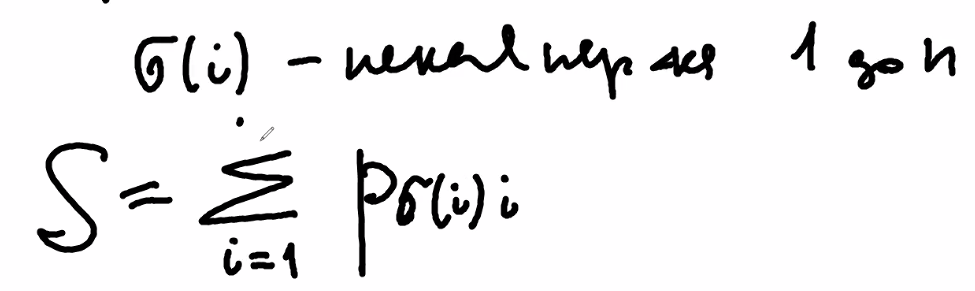 σ(i) – некая пер-ка 1 до n
S = ∑ i=1 p σ(i) i